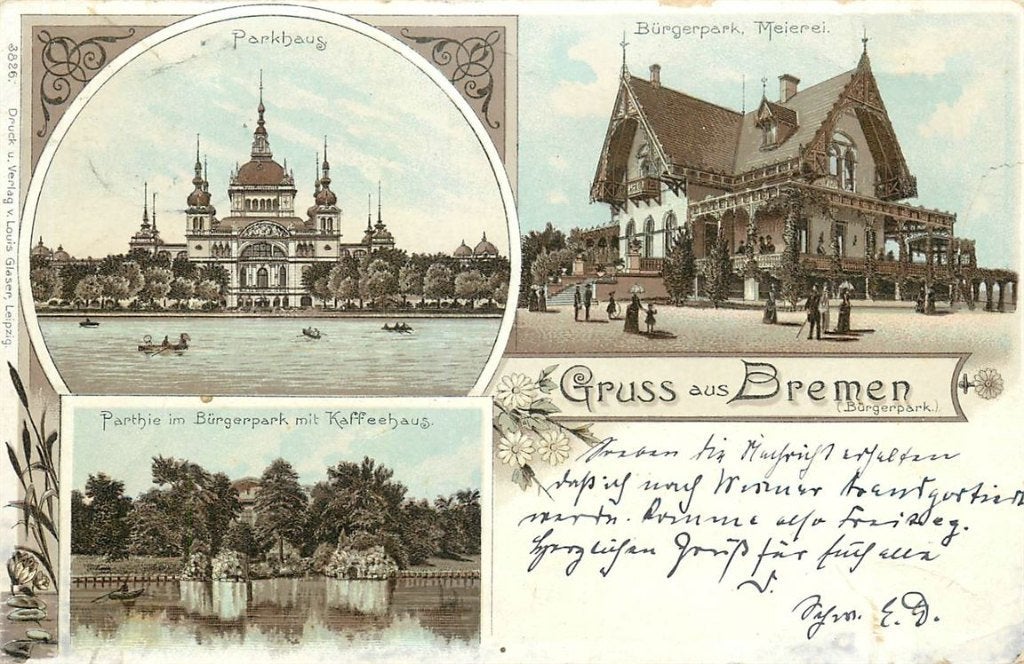 Parkhaus
Bürgerpark, Meierei.
3826. Druck u. Verlag v. Louis Glaser, Leipzig.
Gruss aus Bremen
(Bürgerpark.)
Parthie im Bürgerpark mit Kaffeehaus.
Soeben die Nachricht erhalten
daß ich nach Weimar transportiert
werde. Komme also Freitag.
Herzlichen Gruß für Euch alle
Schw. E. D.